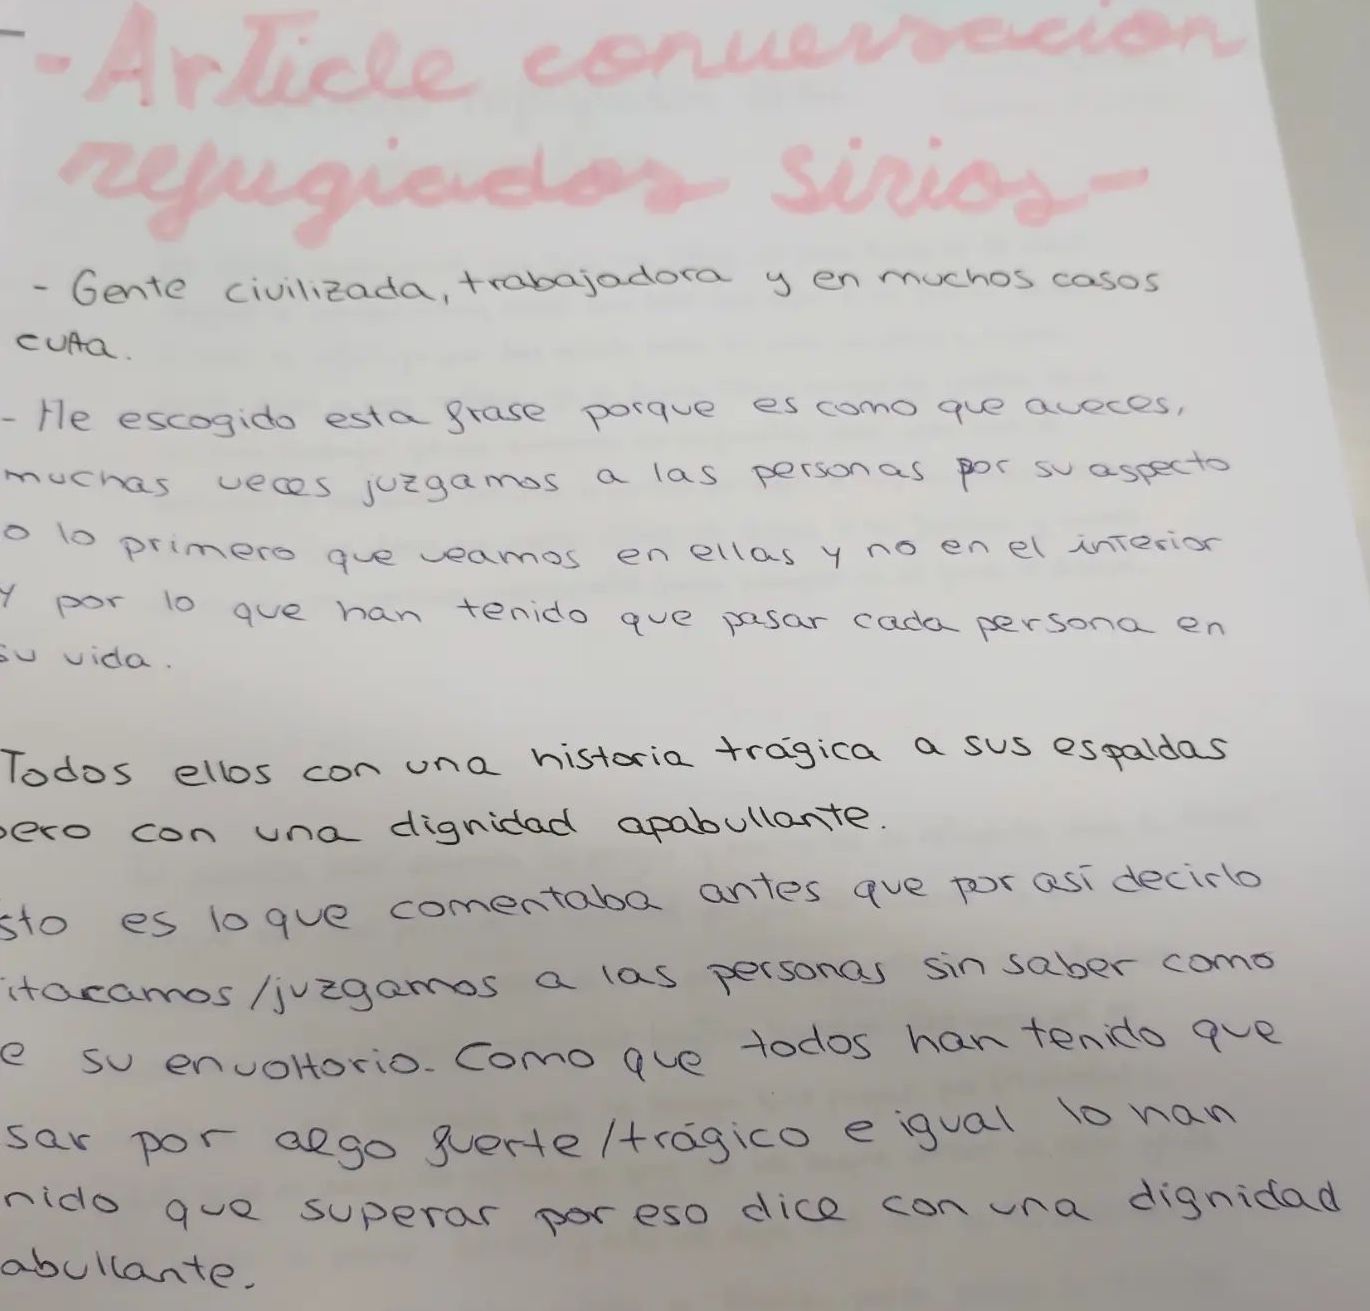 - Article conversacion
refugiados sirios -
- Gente civilizada, trabajadora y en muchos casos
culta.
- He escogido esta frase porque es como que aveces,
muchas veces juzgamos a las personas por su aspecto
o lo primero que veamos en ellas y no en el interior
y por lo que han tenido que pasar cada persona en
su vida.
Todos ellos con una historia trágica a sus espaldas
pero con una dignidad apabullante.
sto es lo que comentaba antes que por así decirlo
itacamos/juzgamos a las personas sin saber como
e su envoltorio. Como que todos han tenido que
sar por algo fuerte/trágico e igual lo han
nido que superar por eso dice con una dignidad
abullante.